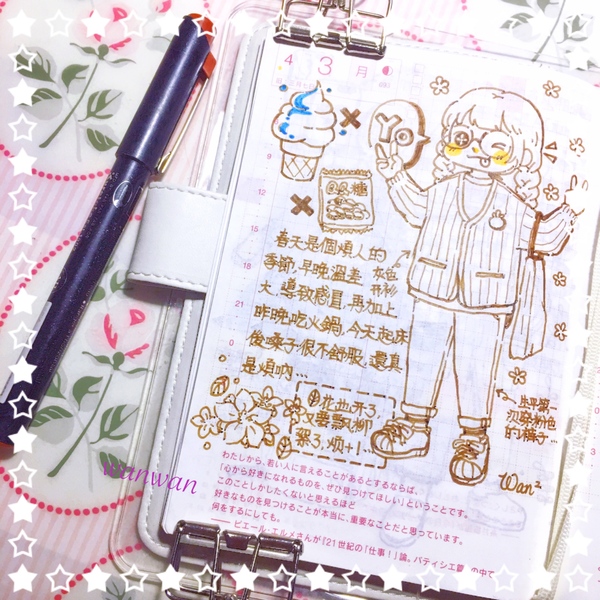 4 3 月
YO
QQ糖
春天是個煩人的
季節,早晚溫差
大,導致感冒,再加上
昨晚吃火鍋,今天起床
後嗓子很不舒服,還真
是煩吶…
灰色
開衫
花也開了,
又要飄柳
絮了,煩+1…
生平第一
次穿粉色
的褲子…
Wan²
wanwan
9
12
15
18
21
0
わたしから、若い人に言えることがあるとするならば、
「心から好きになれるものを、ぜひ見つけてほしい」ということです。
このことしかしたくないと思えるほど
好きなものを見つけることが本当に、重要なことだと思っています。
何をするにしても。
—— ピエール・エルメさんが『21世紀の「仕事!」論。パティシエ篇』の中で